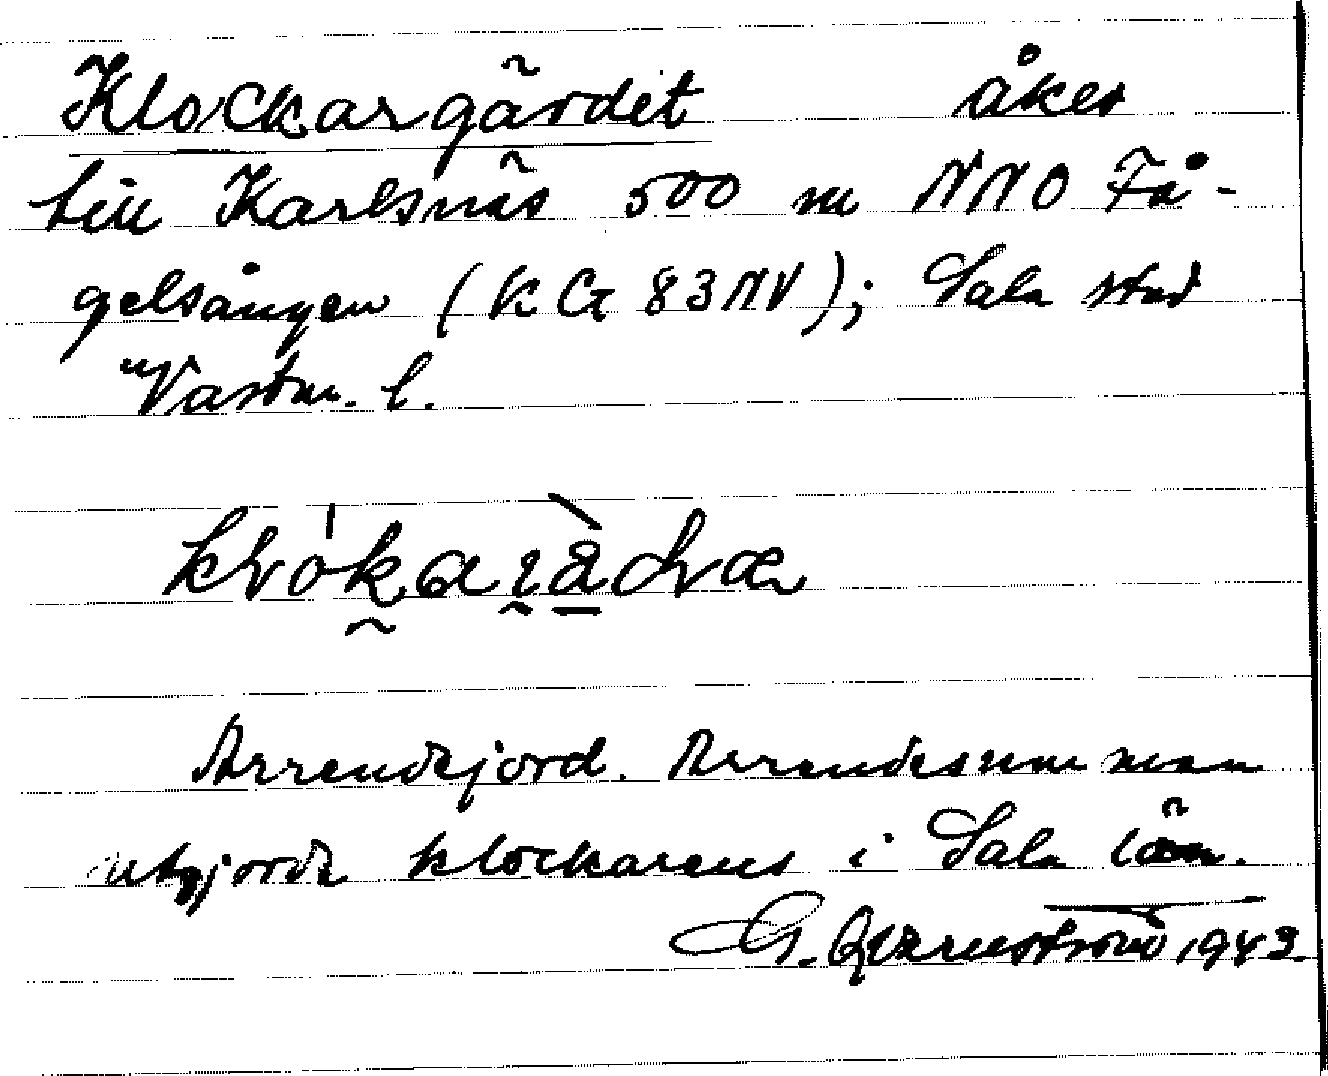 Klockargärdet åker
till Karlsnäs 500 m NNO Få-
gelsången (KG 83NV); Sala stad
Västm. l.
Arrendejord. Arrendesumman
utgjorde klockarens i Sala lön.
G. 1943.